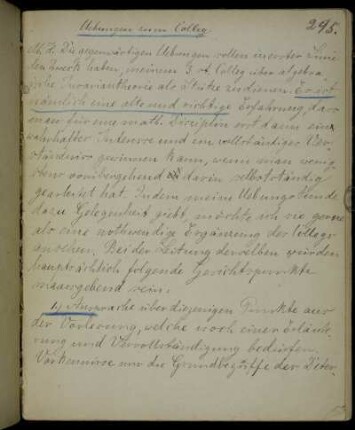 Uebungen zum Colleg.
295.
N.B. Die gegenwärtigen Uebungen sollen in erster Linie
den Zweck haben, meinem 3 st. Colleg über algebra
ische Invariantentheorie als Stütze zu dienen. Es ist
nämlich eine alte und richtige Erfahrung, dass
man für eine math. Disciplin erst dann ein
wahrhaftes Interesse und ein vollständiges Ver
ständniss gewinnen kann, wenn man wenig
stens vorübergehend darin selbstständig
gearbeitet hat. Indem meine Uebungsstunde
dazu Gelegenheit giebt, möchte ich sie gerne
als eine nothwendige Ergänzung des Collegs
ansehen. Bei der Leitung derselben würden
hauptsächlich folgende Gesichtspunkte
maassgebend sein:
1) Aussprache über diejenigen Punkte aus
der Vorlesung, welche noch einer Erläute
rung und Vervollständigung bedürfen.
Vorkenntnisse nur die Grundbegriffe der Deter-